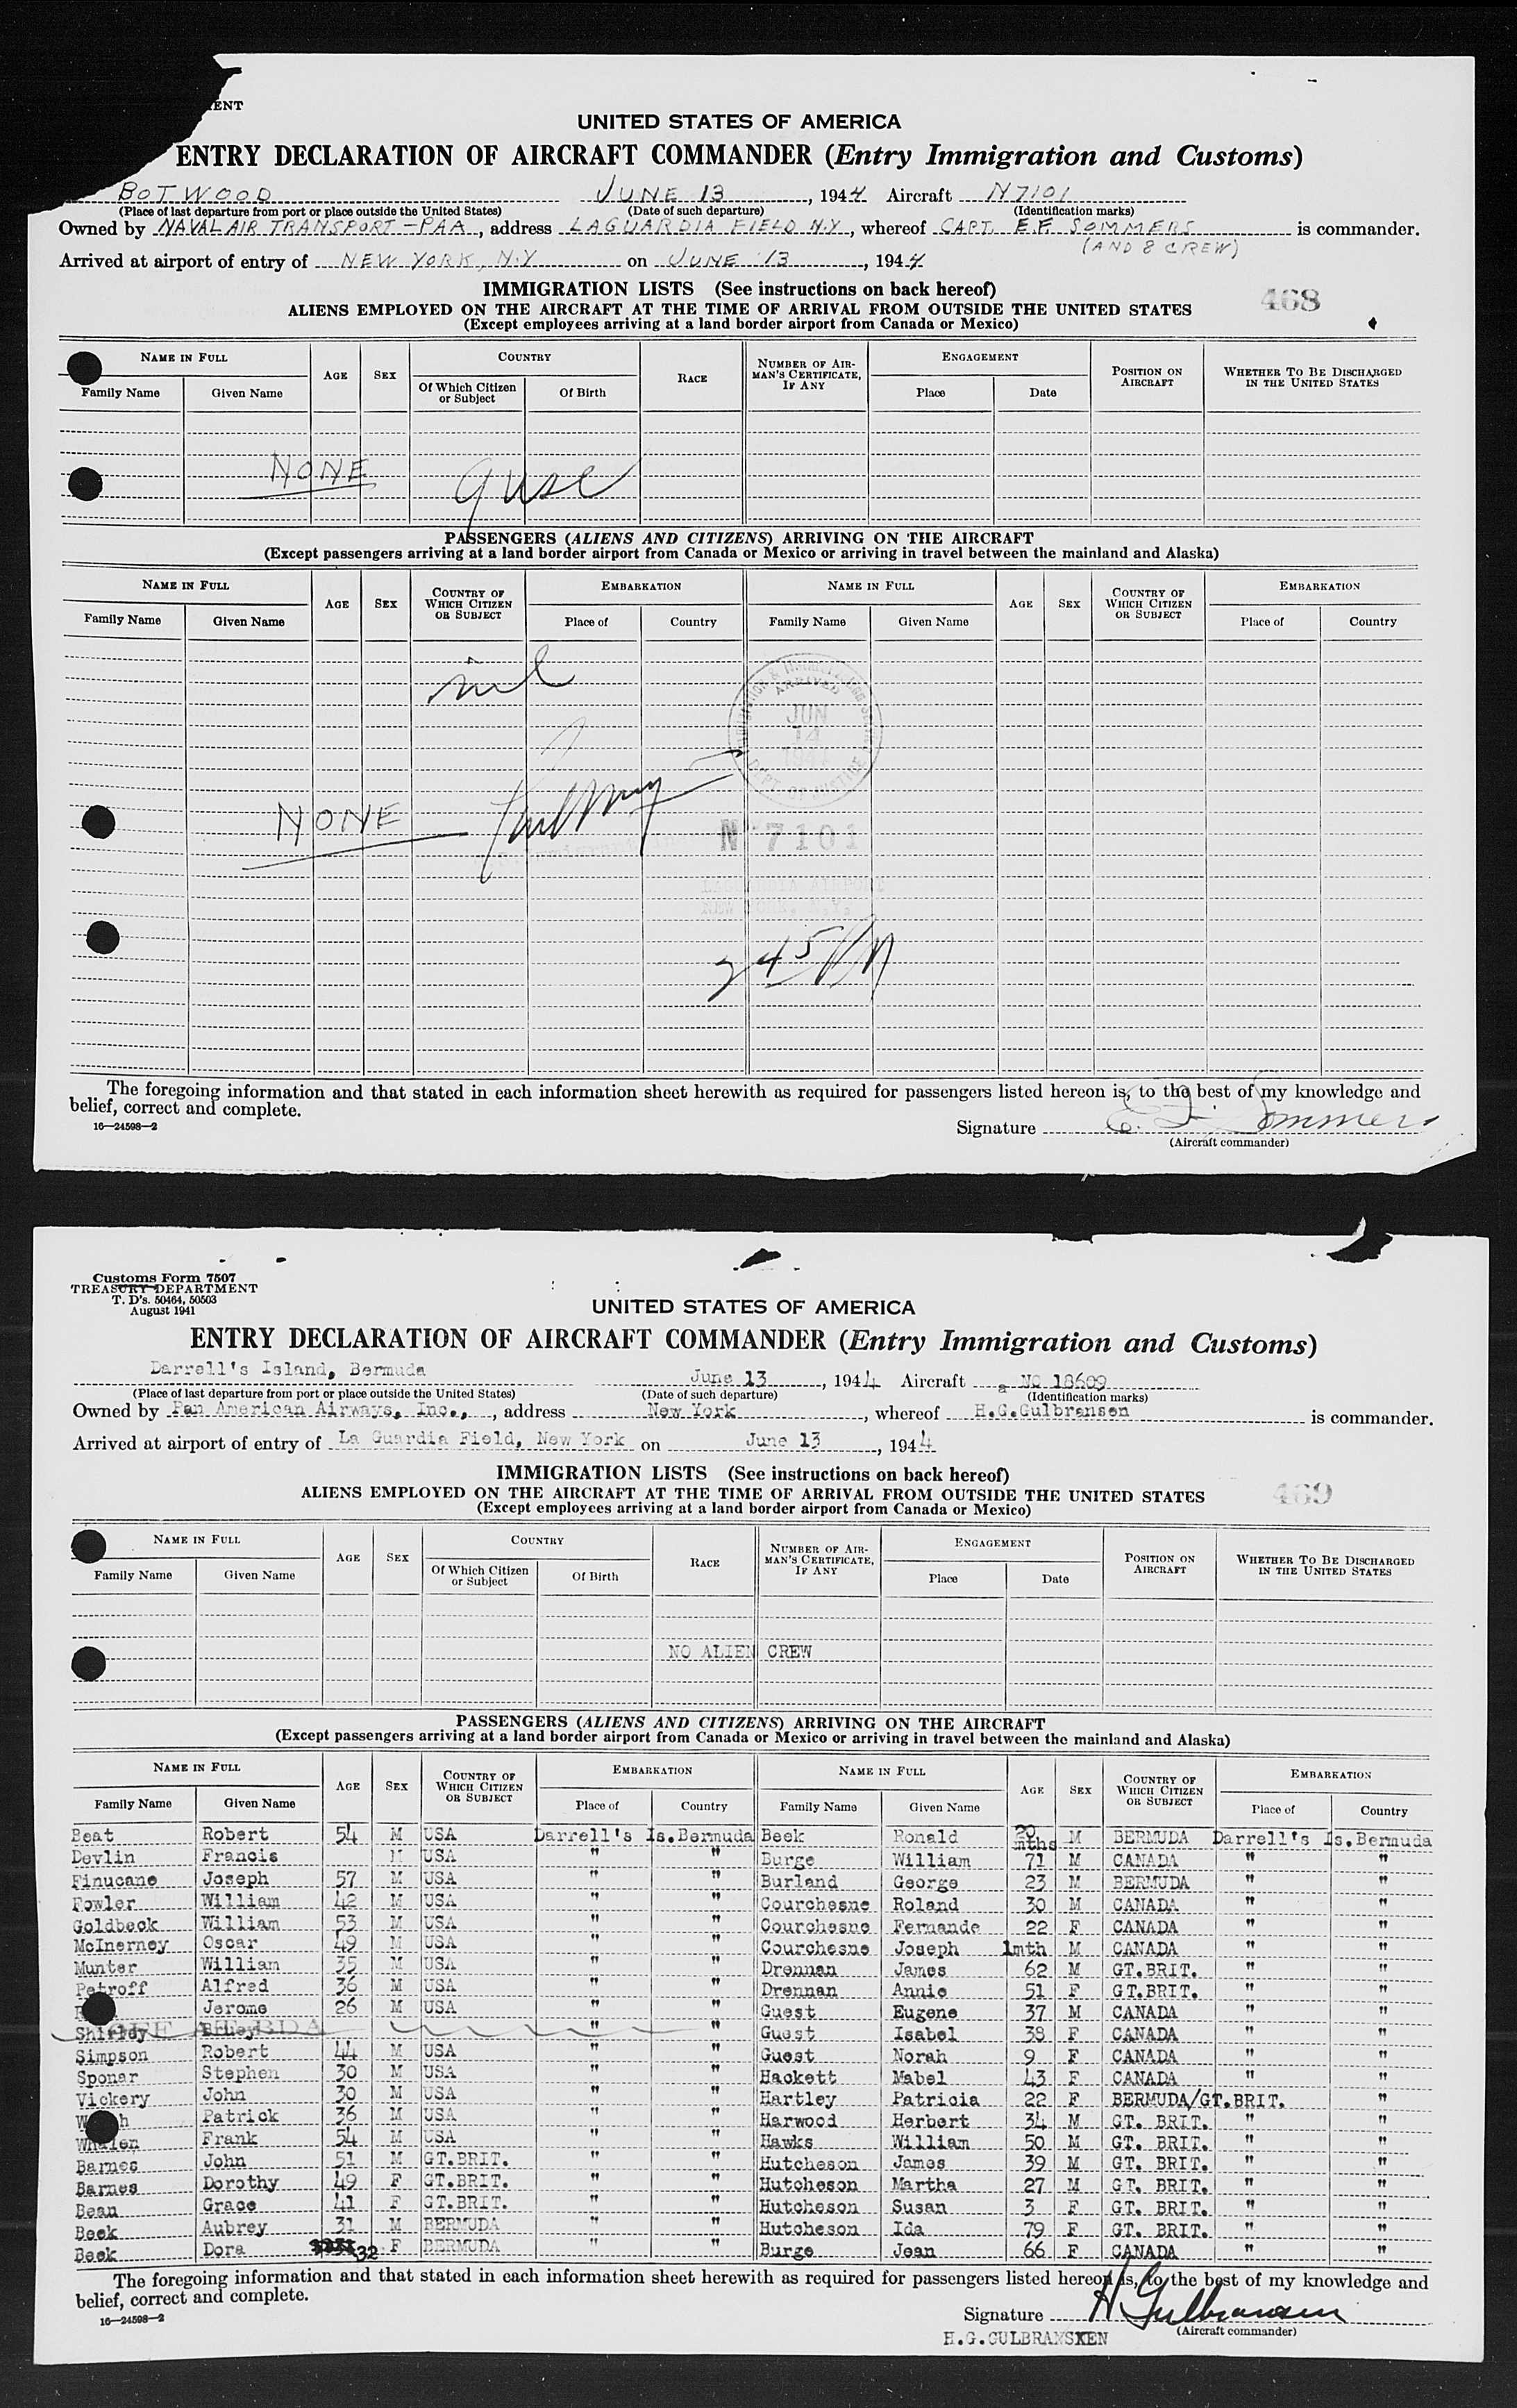 ENT
UNITED STATES OF AMERICA
ENTRY DECLARATION OF AIRCRAFT COMMANDER (Entry Immigration and Customs)
BOTWOOD JUNE 13, 1944 Aircraft N7101
(Place of last departure from port or place outside the United States) (Date of such departure) (Identification marks)
Owned by NAVAL AIR TRANSPORT - PAA, address LAGUARDIA FIELD N.Y, whereof CAPT. E.F. SOMMERS is commander.
(AND 8 CREW)
Arrived at airport of entry of NEW YORK, N.Y on JUNE 13, 1944
IMMIGRATION LISTS (See instructions on back hereof)
468
ALIENS EMPLOYED ON THE AIRCRAFT AT THE TIME OF ARRIVAL FROM OUTSIDE THE UNITED STATES
(Except employees arriving at a land border airport from Canada or Mexico)
NAME IN FULL AGE SEX COUNTRY RACE NUMBER OF AIRMAN'S CERTIFICATE, IF ANY ENGAGEMENT POSITION ON AIRCRAFT WHETHER TO BE DISCHARGED IN THE UNITED STATES
Family Name Given Name Of Which Citizen or Subject Of Birth Place Date
NONE
PASSENGERS (ALIENS AND CITIZENS) ARRIVING ON THE AIRCRAFT
(Except passengers arriving at a land border airport from Canada or Mexico or arriving in travel between the mainland and Alaska)
NAME IN FULL AGE SEX COUNTRY OF WHICH CITIZEN OR SUBJECT EMBARKATION NAME IN FULL AGE SEX COUNTRY OF WHICH CITIZEN OR SUBJECT EMBARKATION
Family Name Given Name Place of Country Family Name Given Name Place of Country
nil
ARRIVED
JUN
14
DEPT. OF JUSTICE
NONE
N 7101
LAGUARDIA AIRPORT
NEW YORK, N.Y.
245 PM
The foregoing information and that stated in each information sheet herewith as required for passengers listed hereon is, to the best of my knowledge and
belief, correct and complete.
16—24598—2
Signature E. F. Sommers
(Aircraft commander)
Customs Form 7507
TREASURY DEPARTMENT
T. D's. 50464, 50503
August 1941
UNITED STATES OF AMERICA
ENTRY DECLARATION OF AIRCRAFT COMMANDER (Entry Immigration and Customs)
Darrell's Island, Bermuda June 13, 1944 Aircraft NC 18609
(Place of last departure from port or place outside the United States) (Date of such departure) (Identification marks)
Owned by Pan American Airways, Inc., address New York, whereof H.G.Gulbransen is commander.
Arrived at airport of entry of La Guardia Field, New York on June 13, 1944
IMMIGRATION LISTS (See instructions on back hereof)
469
ALIENS EMPLOYED ON THE AIRCRAFT AT THE TIME OF ARRIVAL FROM OUTSIDE THE UNITED STATES
(Except employees arriving at a land border airport from Canada or Mexico)
NAME IN FULL AGE SEX COUNTRY RACE NUMBER OF AIRMAN'S CERTIFICATE, IF ANY ENGAGEMENT POSITION ON AIRCRAFT WHETHER TO BE DISCHARGED IN THE UNITED STATES
Family Name Given Name Of Which Citizen or Subject Of Birth Place Date
NO ALIEN CREW
PASSENGERS (ALIENS AND CITIZENS) ARRIVING ON THE AIRCRAFT
(Except passengers arriving at a land border airport from Canada or Mexico or arriving in travel between the mainland and Alaska)
NAME IN FULL AGE SEX COUNTRY OF WHICH CITIZEN OR SUBJECT EMBARKATION NAME IN FULL AGE SEX COUNTRY OF WHICH CITIZEN OR SUBJECT EMBARKATION
Family Name Given Name Place of Country Family Name Given Name Place of Country
Beat Robert 54 M USA Darrell's Is.Bermuda Beek Ronald 20 mths M BERMUDA Darrell's Is.Bermuda
Devlin Francis M USA " " Burge William 71 M CANADA " "
Finucane Joseph 57 M USA " " Burland George 23 M BERMUDA " "
Fowler William 42 M USA " " Courchesne Roland 30 M CANADA " "
Goldbeck William 53 M USA " " Courchesne Fernande 22 F CANADA " "
McInerney Oscar 49 M USA " " Courchesne Joseph 1mth M CANADA " "
Munter William 35 M USA " " Drennan James 62 M GT.BRIT. " "
Petroff Alfred 36 M USA " " Drennan Annie 51 F GT.BRIT. " "
Jerome 26 M USA " " Guest Eugene 37 M CANADA " "
Shirley " " Guest Isabel 38 F CANADA " "
Simpson Robert 44 M USA " " Guest Norah 9 F CANADA " "
Sponar Stephen 30 M USA " " Hackett Mabel 43 F CANADA " "
Vickery John 30 M USA " " Hartley Patricia 22 F BERMUDA/GT.BRIT. "
Patrick 36 M USA " " Harwood Herbert 34 M GT. BRIT. " "
Whalen Frank 54 M USA " " Hawks William 50 M GT. BRIT. " "
Barnes John 51 M GT.BRIT. " " Hutcheson James 39 M GT. BRIT. " "
Barnes Dorothy 49 F GT.BRIT. " " Hutcheson Martha 27 M GT. BRIT. " "
Bean Grace 41 F GT.BRIT. " " Hutcheson Susan 3 F GT. BRIT. " "
Beek Aubrey 31 M BERMUDA " " Hutcheson Ida 79 F GT. BRIT. " "
Beek Dora 32 F BERMUDA " " Burge Jean 66 F CANADA " "
The foregoing information and that stated in each information sheet herewith as required for passengers listed hereon is, to the best of my knowledge and
belief, correct and complete.
16—24598—2
Signature H Gulbransen
(Aircraft commander)
H.G.GULBRANSXEN